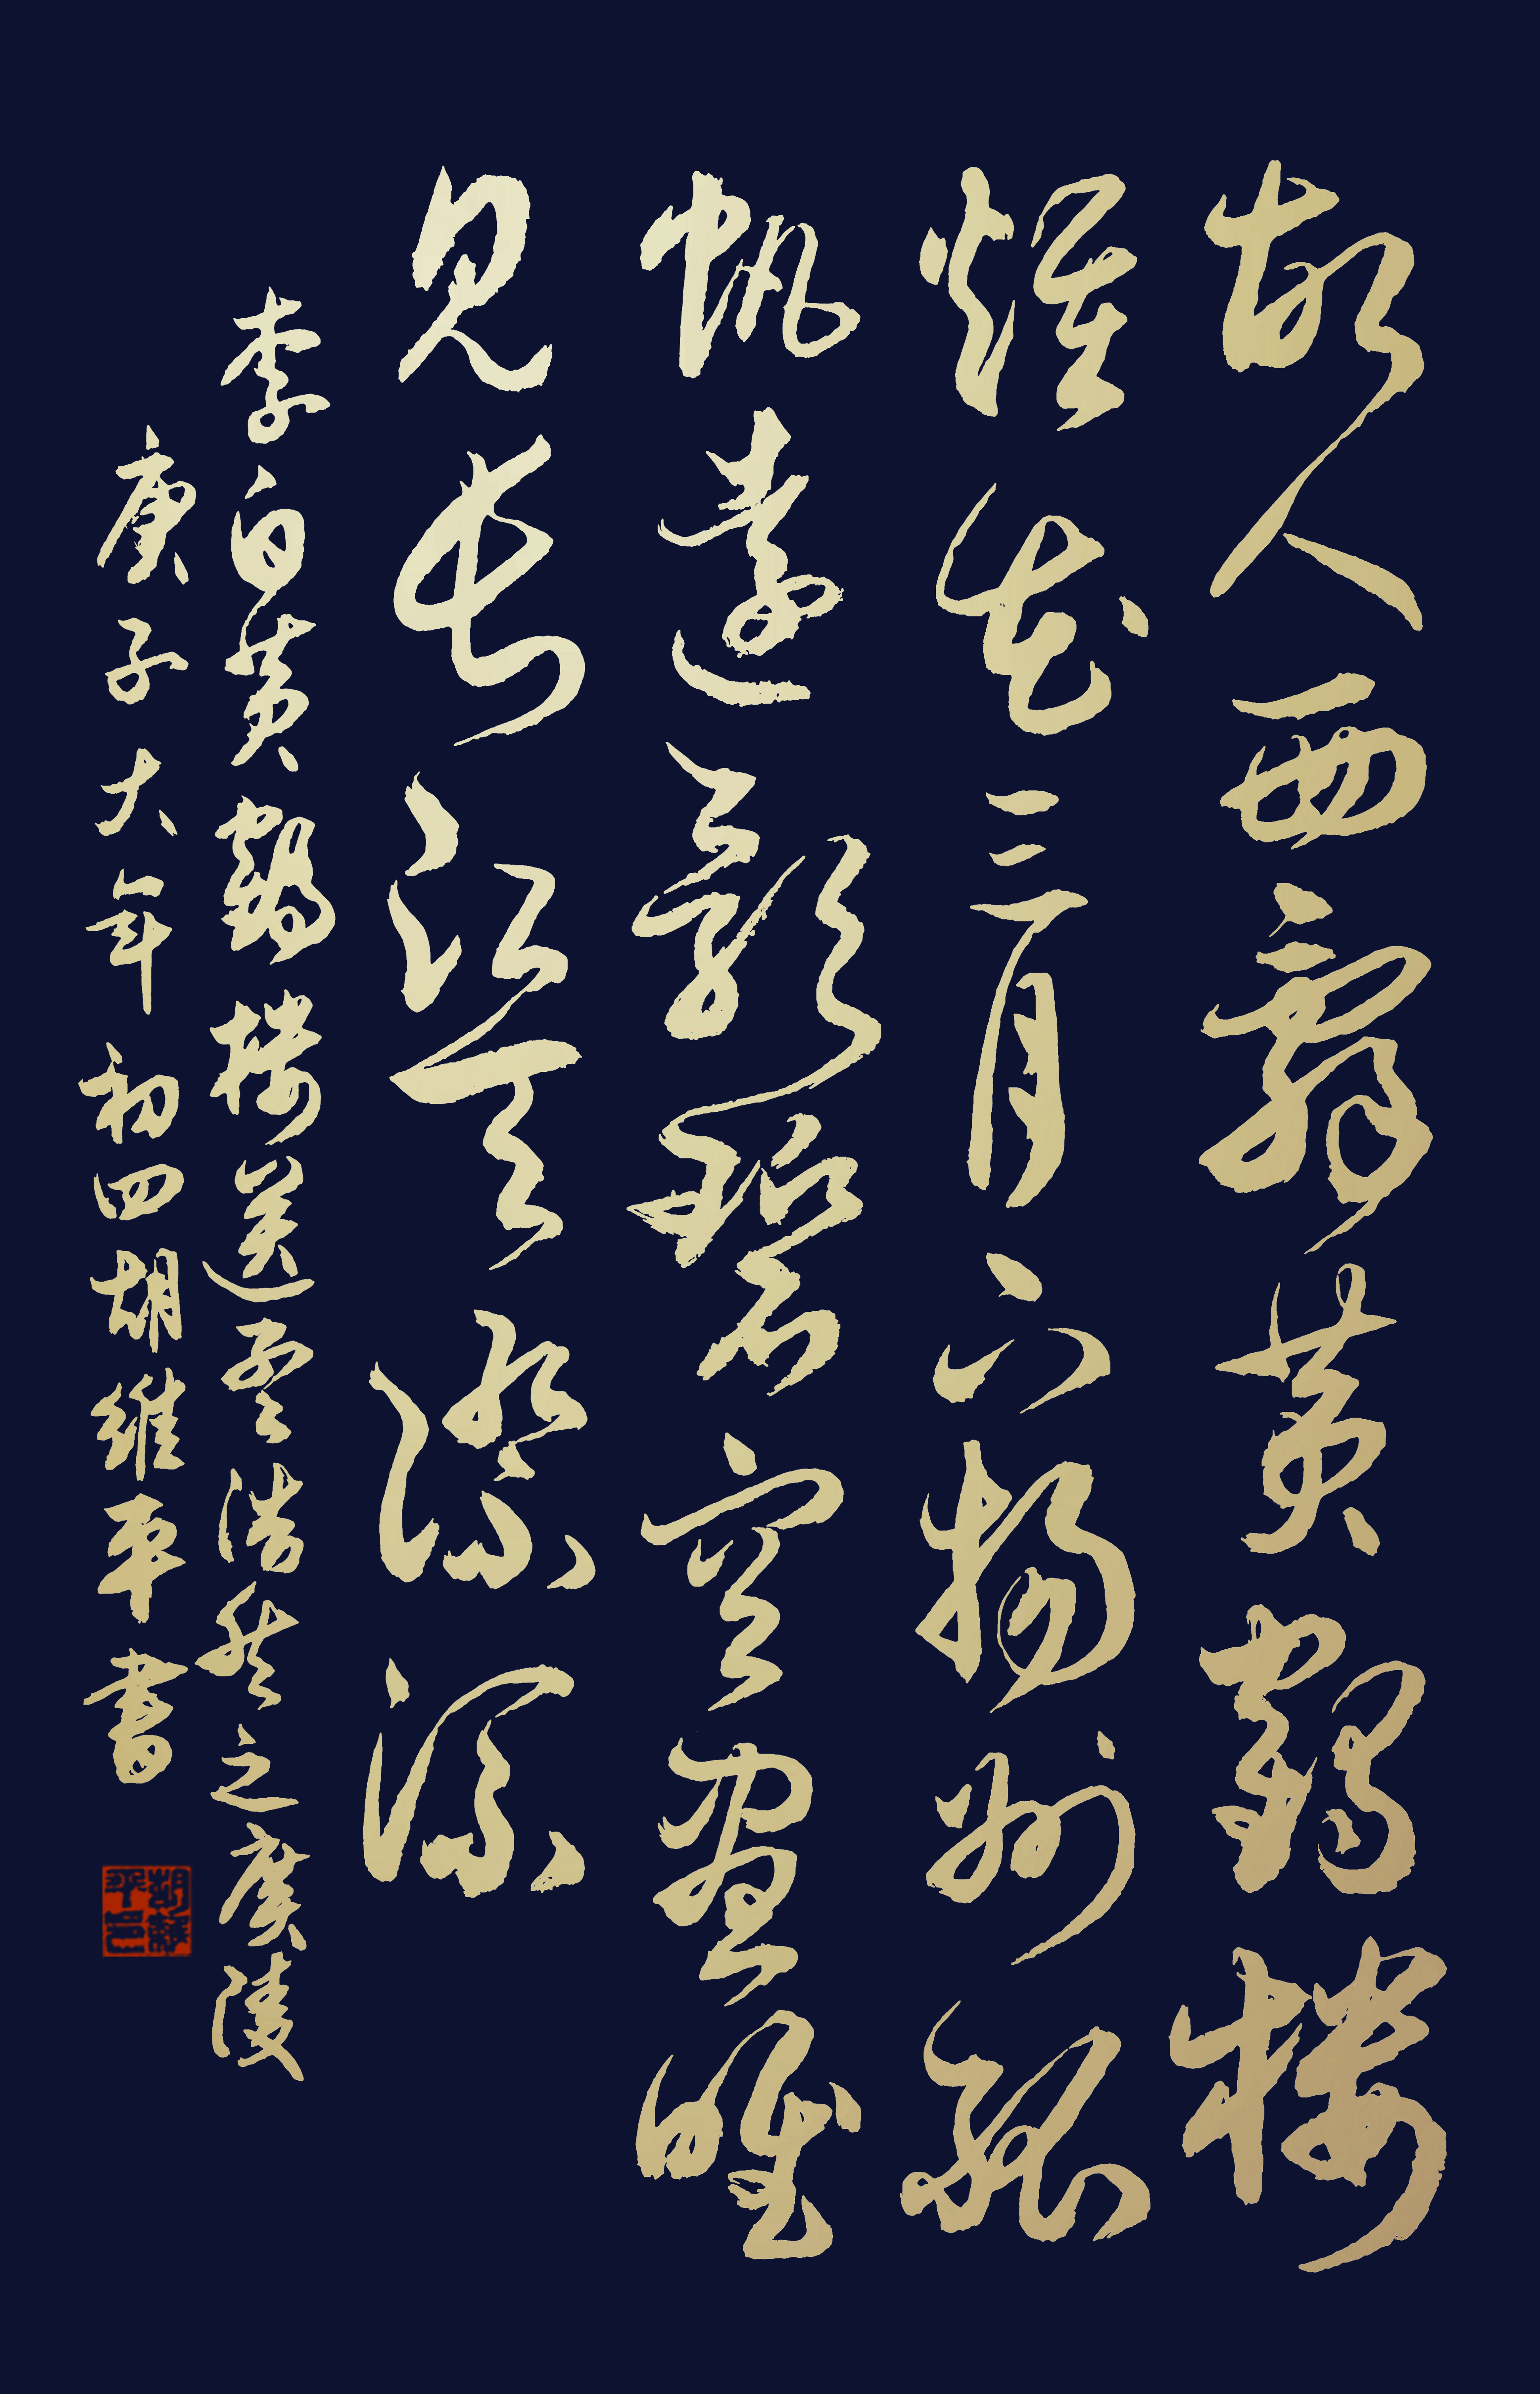 故人西辭黃鶴樓
煙花三月下揚州孤
帆遠影碧空盡唯
見長江天際流
李白黃鶴樓送孟浩然之廣陵
庚子大年初四胡維平書